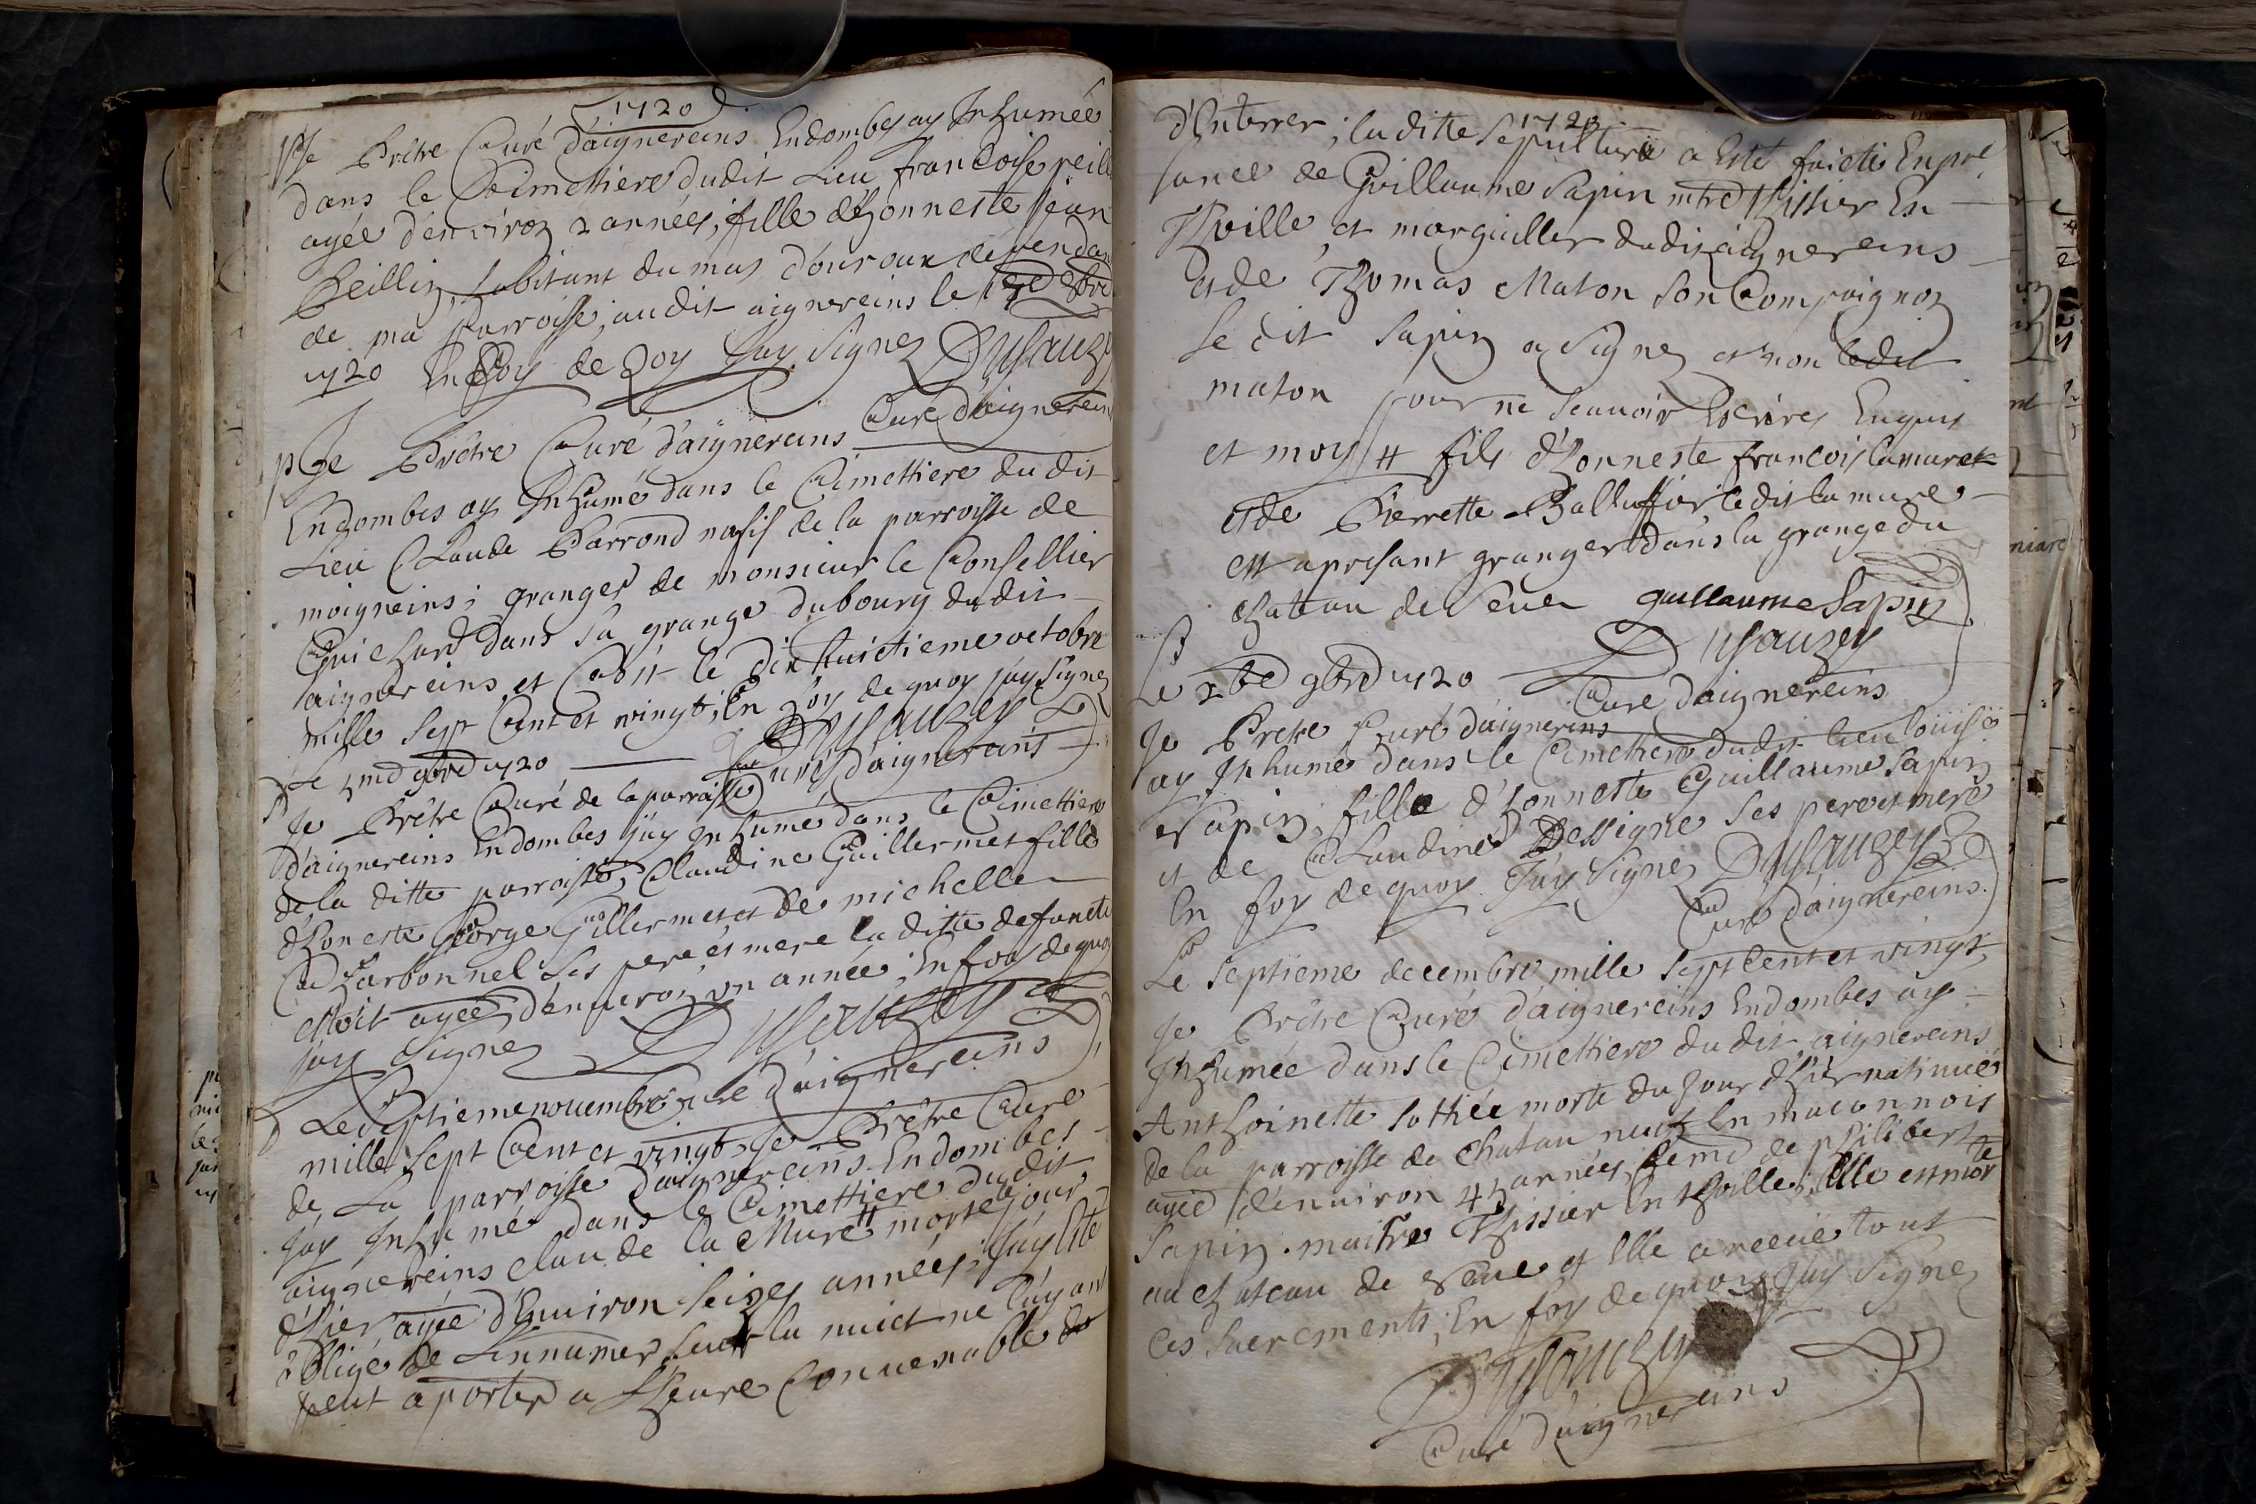 1720
Je Prêtre Curé d'aignereins Endombes ay Inhumée
dans le Cimettiere dudit Lieu francoise peill
agée d'environ 2 années, fille d'honneste Jean
Peillin, habitant du mas d'ouroux dépendan
de ma parroisse, audit aignereins le
1720 En foy de qoy jay Signez Dusauzey
Curé d'aignereins
Je Prêtre Curé d'aignereins
Endombes ay Inhumé dans le Cimettiere du dit
Lieu Claude Parrond natif de la parroisse de
moigneins; granger de monsieur le Consellier
Guichard dans sa grange dubourg du dit
aignereins, et le dix huictieme octobre
mille sept Cent et vingt; En foy de quoy jay Signez
Dusauzey
Le 9bre 1720 Curé d'aignereins
Je Prêtre Curé de la parroisse
d'aignereins Endombes jay Inhumé dans le Cimettiere
de la ditte parroisse, Claudine Guillermet fille
d'honeste George Guillermet et de michelle
Charbonnel Ses pere et mere la ditte defuncte
estoit agée d'enuiron vn année; En foy de quoy
jay Signez Dusauzey
Curé d'aignereins
Le Septieme nouembre
mille Sept Cent et vingt, Je Prêtre Curé
de La parroisse d'aignereins Endombes
jay Inhumé dans le Cimettiere du dit
aignereins claude la Mure # morte jour
d'hier, agée d'Enuiron seizes années; j'ay Esté
obligé de L'innumer sur la nuict ne l'ayant
peut aporter a L'heure Conuenable de
1720
d'Enterrer; la ditte sepulture a Esté faicte En pre
sance de Guillaume Sapin mtre thissier En
Thoille, et marguillier dudit aignereins
et de Thomas Maton son Compaignon
le dit Sapin a Signez et non ledit
maton pour ne scauoir Escrires Enquis
et moy # fils d'honneste francois lamure
et de Pierrette Balluffier ledit la mure
est apresant granger dans la grange du
chateau de Séue guillaume Sapin
Dusauzey
Curé d'aignereins
Le 9bre 1720
Je Pretre Curé d'aignereins
ay Inhumé dans le Cimetiere dudit lieu louise
Sapin, fille d'honneste Guillaume Sapin
et de Claudine Dessigne ses pere et mere
En foy de quoy J'ay Signez Dusauzey
Curé d'aignereins
Le Septieme decembre mille sept Cent et vingt
Je Prêtre Curé d'aignereins Endombes ay
Inhumée dans le Cimettiere du dit aignereins
Anthoinette morte du Jour d'hier natiuue
de la parroisse de Chatau neuf En maconnois
agée d'enuiron années femd de philibert
Sapin. maitre Thissier En thoille; Elle est morte
au chateau de Séue et Elle a receue tout
ces sacrements; En foy de quoy j'ay Signez
Dusauzey
Curé d'aignereins